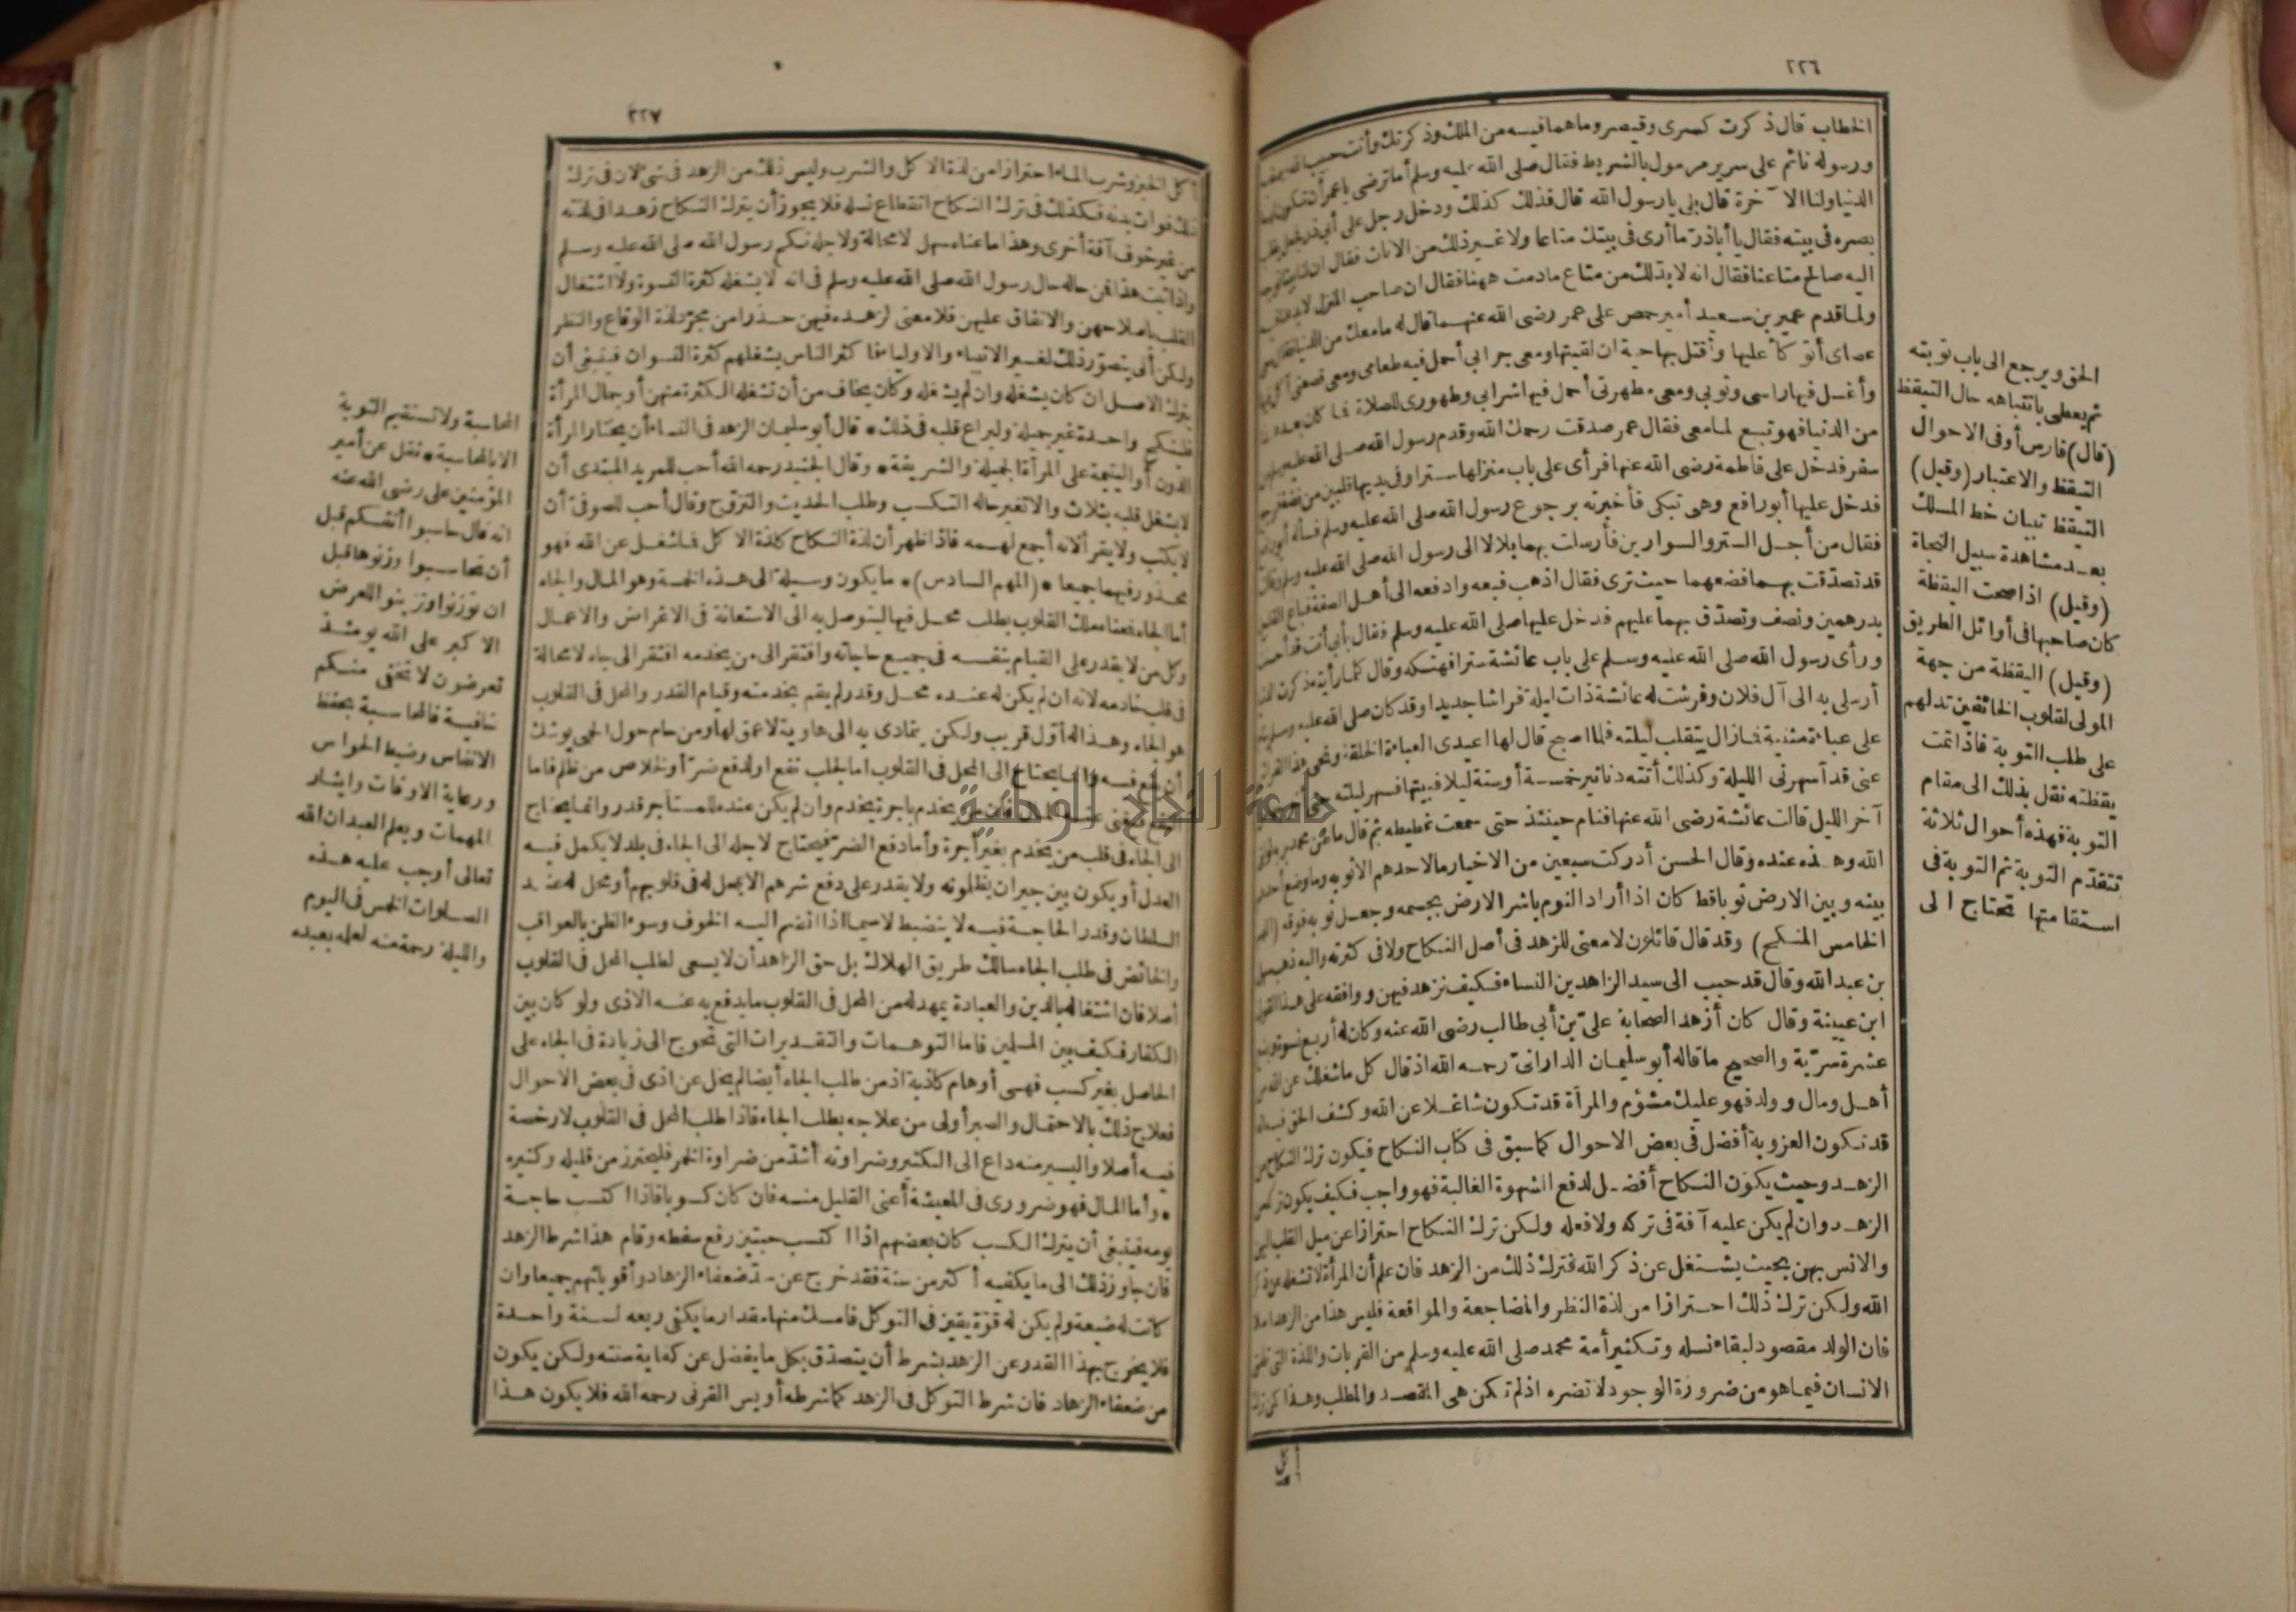 ٢٢٦
الخطاب قال ذكرت كسرى وقيصر وما هما فيه من الملك وذكرتك وأنت حبيب الله
ورسوله نائم على سرير مرمول بالشريط فقال صلى الله عليه وسلم أما ترضى يا عمر أن تكون لهما
الدنيا ولنا الآخرة قال بلى يا رسول الله قال فذلك كذلك ودخل رجل على أبي ذر فجعل يقلب
بصره في بيته فقال يا أبا ذر ما أرى في بيتك متاعا ولا غير ذلك من الاثاث فقال ان لنا بيتا نوجه
اليه صالح متاعنا فقال انه لا بد لك من متاع ما دمت ههنا فقال ان صاحب المنزل لا يدعنا فيه
ولما قدم عمير بن سعيد أمير حمص على عمر رضى الله عنهما قال له ما معك من الدنيا فقال معي
عصاى أتوكأ عليها وأقتل بها حية ان لقيتها ومعى جرابي أحمل فيه طعامى ومعى قصعتى آكل فيها
وأغسل فيها راسى وثوبى ومعى مطهرتى أحمل فيها شرابي وطهورى للصلاة فما كان بعد هذا
من الدنيا فهو تبع لما معى فقال عمر صدقت رحمك الله وقدم رسول الله صلى الله عليه وسلم من
سفر فدخل على فاطمة رضى الله عنها فرأى على باب منزلها سترا وفى يديها قلبين من فضة فرجع
فدخل عليها أبو رافع وهى تبكى فأخبرته برجوع رسول الله صلى الله عليه وسلم فسأله أبو رافع
فقال من أجل الستر والسوارين فأرسلت بهما بلالا الى رسول الله صلى الله عليه وسلم وقالت
قد تصدّقت بهما فضعهما حيث ترى فقال اذهب فبعه وادفعه الى أهل الصفة فباع القلبين
بدرهمين ونصف وتصدّق بهما عليهم فدخل عليها صلى الله عليه وسلم فقال بأبي أنت قد أحسنت
ورأى رسول الله صلى الله عليه وسلم على باب عائشة سترا فهتكه وقال كلما رأيته ذكرت الدنيا
أرسلى به الى آل فلان وفرشت له عائشة ذات ليلة فراشا جديدا وقد كان صلى الله عليه وسلم ينام
على عباءة مثنية فما زال يتقلب ليلته فلما اصبح قال لها اعيدى العباءة الخلقة ونحى هذا الفراش
عنى قد آسهرنى الليلة وكذلك أتته دنانير خمسة أوستة ليلا فبيتها فسهر ليلته حتى
آخر الليل قالت عائشة رضى الله عنها فنام حينئذ حتى سمعت غطيطه ثم قال ما ظن محمد بربه لو لقى
الله وهذه عنده وقال الحسن أدركت سبعين من الاخيار ما لاحدهم الا ثوبه وما وضع أحدهم
بينه وبين الارض ثوبا قط كان اذا أراد النوم باشر الارض بجسمه وجعل ثوبه فوقه (المهم
الخامس المنكح) وقد قال قائلون لا معنى للزهد فى أصل النكاح ولا فى كثرته واليه ذهب سهل
بن عبد الله وقال قد حبب الى سيد الزاهدين النساء فكيف نزهد فيهن ووافقه على هذا القول
ابن عيينة وقال كان أزهد الصحابة علىّ بن أبي طالب رضى الله عنه وكان له أربع نسوة وبضع
عشرة سرّية والصحيح ما قاله أبو سليمان الدارانىّ رحمه الله اذ قال كل ما شغلك عن الله من
أهل ومال وولد فهو عليك مشؤم والمرأة قد تكون شاغلا عن الله وكشف الحق فيه انه
قد تكون العزوبة أفضل فى بعض الاحوال كما سبق فى كتاب النكاح فيكون ترك النكاح من
الزهد وحيث يكون النكاح أفضل لدفع الشهوة الغالبة فهو واجب فكيف يكون تركه من
الزهد وان لم يكن عليه آفة فى تركه ولا فعله ولكن ترك النكاح احترازا عن ميل القلب اليهن
والانس بهن بحيث يشتغل عن ذكر الله فترك ذلك من الزهد فان علم أن المرأة لا تشغله عن ذكر
الله ولكن ترك ذلك احترازا من لذة النظر والمضاجعة والمواقعة فليس هذا من الزهد أصلا
فان الولد مقصود لبقاء نسله وتكثير أمة محمد صلى الله عليه وسلم من القربات واللذة التى تلحق
الانسان فيما هو من ضرورة الوجود لا تضره اذ لم تكن هى المقصد والمطلب وهذا كمن ترك
أكل
الحق ويرجع الى باب توبته
ثم يعطى بانتباهه حال التيقظ
(قال) فارس أوفى الاحوال
التيقظ والاعتبار (وقيل)
التيقظ تبيان خط المسلك
بعد مشاهدة سبيل النجاة
(وقيل) اذا صحت اليقظة
كان صاحبها فى أوائل الطريق
(وقيل) اليقظة من جهة
المولى لقلوب الخائفين تدلهم
على طلب التوبة فاذا تمت
يقظته نقل بذلك الى مقام
التوبة فهذه أحوال ثلاثة
تتقدّم التوبة ثم التوبة فى
استقامتها تحتاج الى
٢٢٧
أكل الخبز وشرب الماء احترازا من لذة الاكل والشرب وليس ذلك من الزهد فى شىء لان فى ترك
ذلك فوات بدنه فكذلك فى ترك النكاح انقطاع نسله فلا يجوز أن يترك النكاح زهدا فى لذته
من غير خوف آفة أخرى وهذا ما عناه سهل لا محالة ولاجله نكح رسول الله صلى الله عليه وسلم
واذا ثبت هذا فمن حاله حال رسول الله صلى الله عليه وسلم فى انه لا يشغله كثرة النسوة ولا اشتغال
القلب باصلاحهن والانفاق عليهن فلا معنى لزهده فيهن حذرا من مجرّد لذة الوقاع والنظر
ولكن أنى يتصوّر ذلك لغير الانبياء والاولياء فاكثر الناس يشغلهم كثرة النسوان فينبغى أن
يترك الاصل ان كان يشغله وان لم يشغله وكان يخاف من أن تشغله الكثرة منهن أو جمال المرأة
فلينكح واحدة غير جميلة وليراع قلبه فى ذلك * قال أبو سليمان الزهد فى النساء أن يختار المرأة
الدون أو اليتيمة على المرأة الجميلة والشريفة * وقال الجنيد رحمه الله أحب للمريد المبتدى أن
لا يشغل قلبه بثلاث والا تغير حاله التكسب وطلب الحديث والتزوّج وقال أحب للصوفىّ أن
لا يكتب ولا يقرأ لانه أجمع لهمه فاذا ظهر أن لذة النكاح كلذة الاكل فما شغل عن الله فهو
محذور فيهما جميعا * (المهم السادس) * ما يكون وسيلة الى هذه الخمسة وهو المال والجاه
أما الجاه فمعناه ملك القلوب بطلب محل فيها ليتوصل به الى الاستعانة فى الاغراض والاعمال
وكل من لا يقدر على القيام بنفسه فى جميع حاجاته وافتقر الى من يخدمه افتقر الى جاه لا محالة
فى قلب خادمه لانه ان لم يكن له عنده محل وقدر لم يقم بخدمته وقيام القدر والمحل فى القلوب
هو الجاه وهذا له أوّل قريب ولكن يتمادى به الى هاوية لا عمق لها ومن حام حول الحمى يوشك
أن يقع فيه وانما يحتاج الى المحل فى القلوب اما لجلب نفع او لدفع ضرّ أو لخلاص من ظلم فاما
النفع فيغنى عنه المال فان من يخدم باجرة يخدم وان لم يكن عنده للمستأجر قدر وانما يحتاج
الى الجاه فى قلب من يخدم بغير أجرة وأما دفع الضرّ فيحتاج لاجله الى الجاه فى بلد لا يكمل فيه
العدل أو يكون بين جيران يظلمونه ولا يقدر على دفع شرهم الا بمحل له فى قلوبهم أو محل له عند
السلطان وقدر الحاجة فيه لا ينضبط لا سيما اذا انضم اليه الخوف وسوء الظن بالعواقب
والخائض فى طلب الجاه سالك طريق الهلاك بل حق الزاهد أن لا يسعى لطلب المحل فى القلوب
أصلا فان اشتغاله بالدين والعبادة يمهد له من المحل فى القلوب ما يدفع به عنه الاذى ولو كان بين
الكفار فكيف بين المسلمين فاما التوهمات والتقديرات التى تحوج الى زيادة فى الجاه على
الحاصل بغير كسب فهى أوهام كاذبة اذ من طلب الجاه أيضا لم يخل عن اذى فى بعض الاحوال
فعلاج ذلك بالاحتمال والصبر أولى من علاجه بطلب الجاه فاذا طلب المحل فى القلوب لا رخصة
فيه أصلا واليسير منه داع الى الكثير وضراوته أشدّ من ضراوة الخمر فليحترز من قليله وكثيره
* وأما المال فهو ضرورى فى المعيشة أعنى القليل منه فان كان كسوبا فاذا اكتسب حاجة
يومه فينبغى أن يترك الكسب كان بعضهم اذا اكتسب حبتين رفع سفطه وقام هذا شرط الزهد
فان جاوز ذلك الى ما يكفيه أكثر من سنة فقد خرج عن حدّ ضعفاء الزهاد وأقويائهم جميعا وان
كانت له ضيعة ولم يكن له قوّة يقين فى التوكل فامسك منها مقدار ما يكفى ريعه لسنة واحدة
فلا يخرج بهذا القدر عن الزهد بشرط أن يتصدّق بكل ما يفضل عن كفاية سنته ولكن يكون
من ضعفاء الزهاد فان شرط التوكل فى الزهد كما شرطه أويس القرنى رحمه الله فلا يكون هذا
المحاسبة ولا تستقيم التوبة
الا بالمحاسبة * نقل عن أمير
المؤمنين على رضى الله عنه
انه قال حاسبوا أنفسكم قبل
أن تحاسبوا وزنوها قبل
ان توزنوا وتزينوا للعرض
الاكبر على الله يومئذ
تعرضون لا تخفى منكم
خافية فالمحاسبة بحفظ
الانفاس وضبط الحواس
ورعاية الاوقات وايثار
المهمات ويعلم العبد ان الله
تعالى أوجب عليه هذه
الصلوات الخمس فى اليوم
والليلة رحمة منه لعلمه بعبده
جامعة النجاح الوطنية